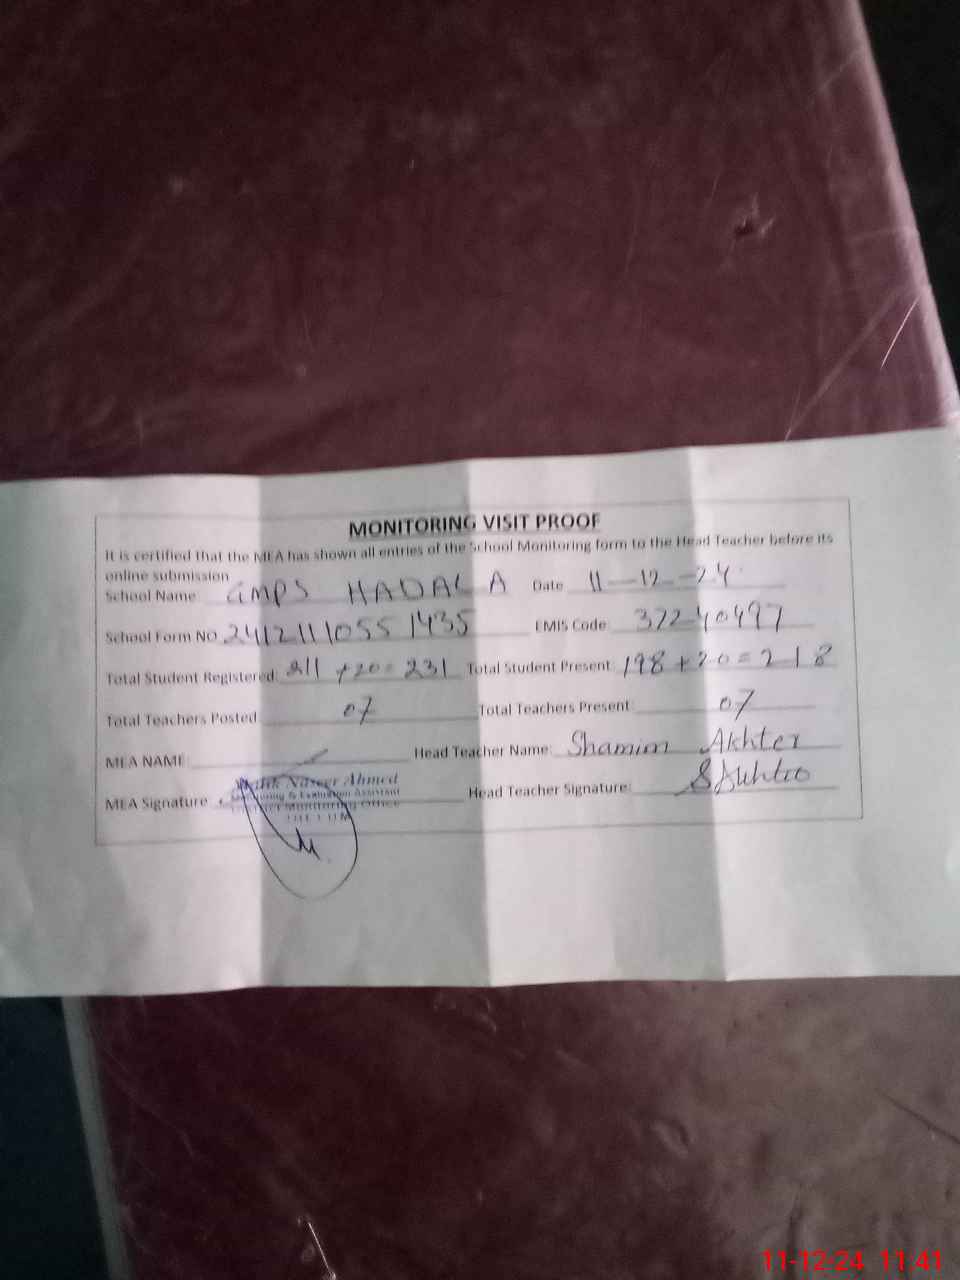 MONITORING VISIT PROOF
It is certified that the MEA has shown all entries of the School Monitoring form to the Head Teacher before its
online submission
School Name: GMPS HADALA Date 11-12-24
School Form NO. 24121110551435 EMIS Code: 37240497
Total Student Registered: 211 +20= 231 Total Student Present: 198+20=218
Total Teachers Posted: 07 Total Teachers Present: 07
MEA NAME: Head Teacher Name: Shamim Akhter
Naseer Ahmed
Monitoring & Evaluation Assistant
District Monitoring Office
MEA Signature Head Teacher Signature: S Akhter
11-12-24 11:41